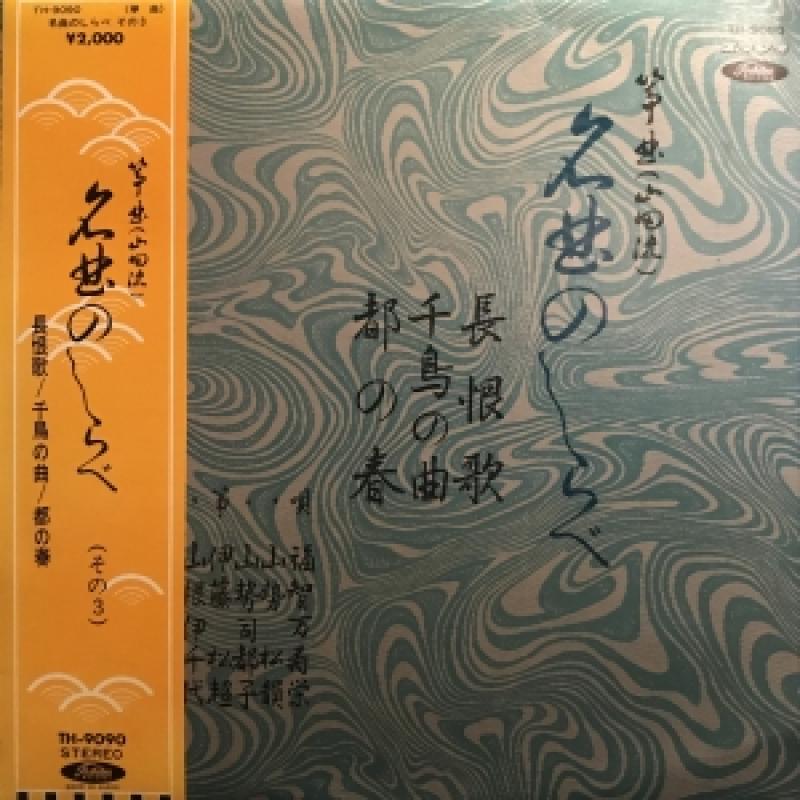 TH-9090 (箏曲)
名曲のしらべ その3
¥2,000
箏曲(山田流)
名曲のしらべ
長恨歌/千鳥の曲/都の春
(その3)
TH-9090
STEREO
箏曲(山田流)
名曲のしらべ
長恨歌
千鳥の曲
都の春
唄
箏
山勢松韻
山勢司都子
伊藤松超